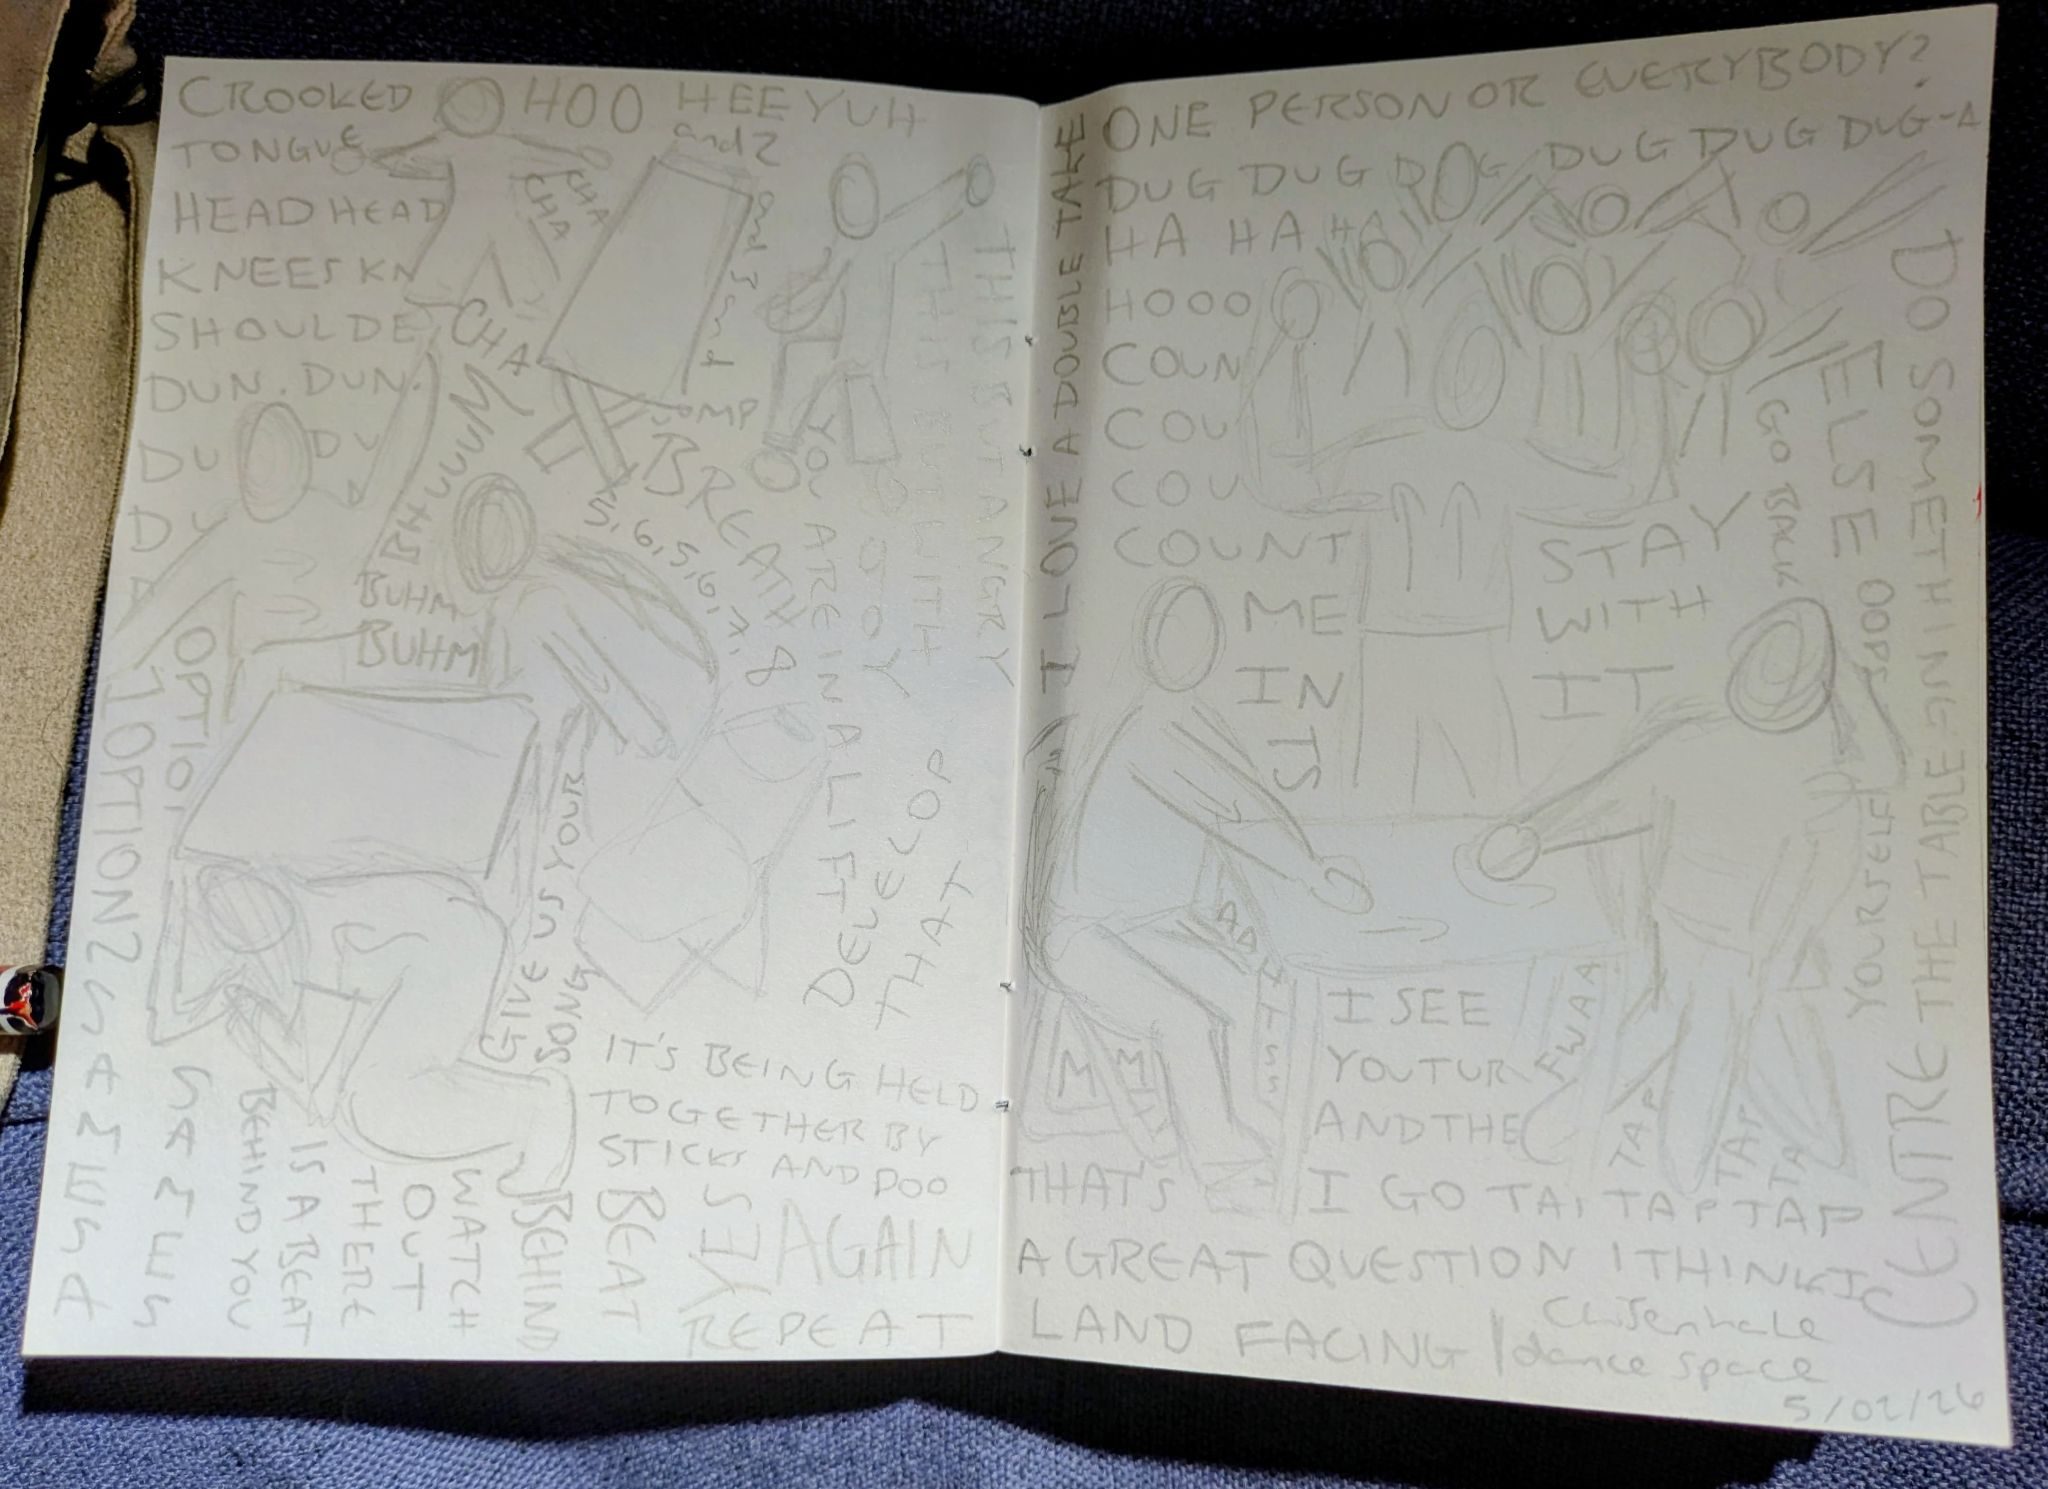 CROOKED
TONGUE
HEAD HEAD
KNEES KN
SHOULDE
DUN. DUN.
DU DU
DU
HOO HEE YUH
and 2
and 3
CHA
CHA
CHA
BHUUUUM
BUHM
BUHM
BREATH
5, 6, 5, 6, 7, 8
THIS BUT ANGRY
THIS BUT WITH
YOU ARE IN A LIFT
DEVELOP
THAT
OPTION
OPTIONS
GAMES
GAMES
GIVE US YOUR
SONG
IT'S BEING HELD
TOGETHER BY
STICKS AND POO
BEHIND YOU
IS A BEAT
THERE
OUT
WATCH
BEHIND
BEAT
YES
AGAIN
REPEAT
I LOVE A DOUBLE TAKE
ONE PERSON OR EVERYBODY?
DUG DUG DUG DUG DUG DUG-A
HA HA HA
HOOO
COUN
COU
COU
COUNT
ME
IN
STAY
WITH
IT
GO BACK
DO SOMETHING
ELSE
OOPS
YOURSELF
CENTRE THE TABLE ON
I SEE
YOU TUR
AND THE
FWAA
TAP
TAP
TA
THAT'S I GO TAP TAP TAP
A GREAT QUESTION I THINK I
LAND FACING
Chisenhale
dance space
5/02/26